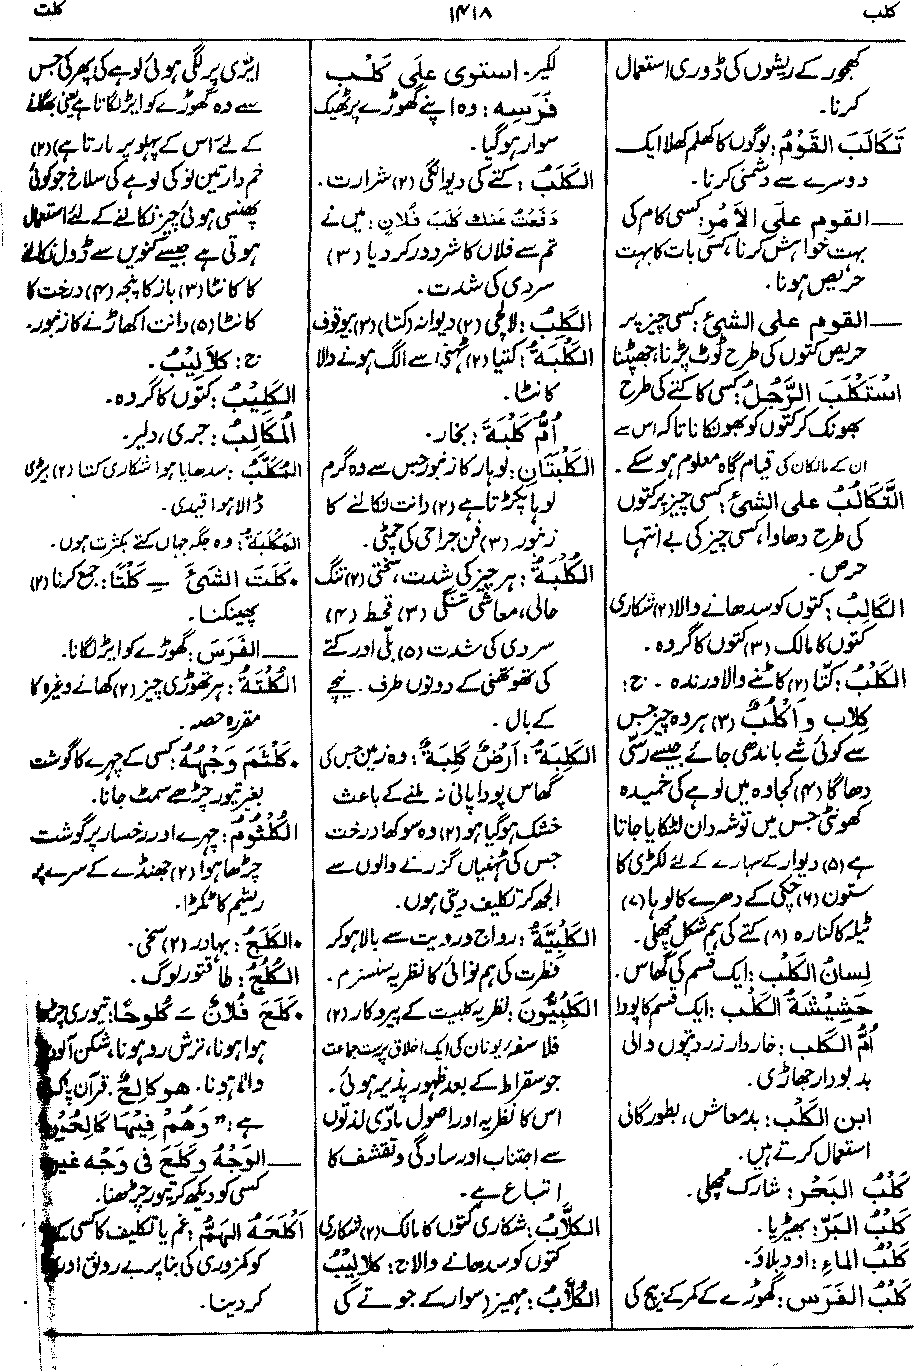 کلب
۱۴۱۸
کلت
کھجور کے ریشوں کی ڈوری استعمال
کرنا۔
تَکَالَبَ القَوْمُ: لوگوں کا کھلم کھلا ایک
دوسرے سے دشمنی کرنا۔
ــــ القوم علی الأمرِ: کسی کام کی
بہت خواہش کرنا، کسی بات کا بہت
حریص ہونا۔
ــــ القوم علی الشیئِ: کسی چیز پر
حریص کتوں کی طرح ٹوٹ پڑنا، جھپٹنا
اسْتَکْلَبَ الرَّجُلُ: کسی کا کتے کی طرح
بھونک کر کتوں کو بھونکانا تاکہ اس سے
ان کے مالکان کی قیام گاہ معلوم ہو سکے۔
التَّکَالُبُ علی الشیئِ: کسی چیز پر کتوں
کی طرح دھاوا، کسی چیز کی بے انتہا
حرص۔
الکَالِبُ: کتوں کو سدھانے والا (۲) شکاری
کتوں کا مالک (۳) کتوں کا گروہ۔
الکَلْبُ: کتّا (۲) کاٹنے والا درندہ۔ ج:
کِلاب و أکْلُبٌ (۳) ہر وہ چیز جس
سے کوئی شے باندھی جائے جیسے رسّی
دھاگا (۴) کجاوہ میں لوہے کی خمیدہ
کھونٹی جس میں توشہ دان لٹکایا جاتا
ہے (۵) دیوار کے سہارے کے لئے لکڑی کا
ستون (۶) چکی کے دھرے کا لوہا (۷)
ٹیلہ کا کنارہ (۸) کتے کی ہم شکل مچھلی۔
لِسانُ الکَلْب: ایک قسم کی گھاس۔
حَشِیْشَةُ الکَلْب: ایک قسم کا پودا
أمُّ الکَلْب: خاردار زرد پتوں والی
بدبودار جھاڑی۔
ابن الکَلْب: بدمعاش، بطور گالی
استعمال کرتے ہیں۔
کَلْبُ البَحْر: شارک مچھلی۔
کَلْبُ البَرِّ: بھیڑیا۔
کَلْبُ الماءِ: اود بلاؤ۔
کَلْبُ الفَرَس: گھوڑے کے کمر کے بیچ کی
لکیر۔ استوی علی کَلْبِ
فَرَسِه: وہ اپنے گھوڑے پر ٹھیک
سوار ہو گیا۔
الکَلَبُ: کتے کی دیوانگی (۲) شرارت۔
دَفَعْتُ عنك کَلَبَ فُلان: میں نے
تم سے فلاں کا شر دور کر دیا (۳)
سردی کی شدت۔
الکَلِبُ: لالچی (۲) دیوانہ (کتا) (۳) بیوقوف
الکَلْبَةُ: کتیا (۲) ٹہنی سے الگ ہونے والا
کانٹا۔
أمُّ کَلْبَة: بخار۔
الکَلْبَتَانِ: لوہار کا زنبور جس سے وہ گرم
لوہا پکڑتا ہے (۲) دانت نکالنے کا
زنبور (۳) فن جراحی کی چمٹی۔
الکُلْبَةُ: ہر چیز کی شدت، سختی (۲) تنگ
حالی، معاشی تنگی (۳) قحط (۴)
سردی کی شدت (۵) بلّی اور کتے
کی تھوتھنی کے دونوں طرف۔ نیچے
کے بال۔
الکَلِبَةُ: أرْضٌ کَلِبَةٌ: وہ زمین جس کی
گھاس پودا پانی نہ ملنے کے باعث
خشک ہو گیا ہو (۲) وہ سوکھا درخت
جس کی ٹہنیاں گزرنے والوں سے
الجھ کر تکلیف دیتی ہوں۔
الکَلْبِیَّةُ: رواج و روایت سے بالا ہو کر
فطرت کی ہم نوائی کا نظریہ سنسزم۔
الکَلْبِیُّونَ: نظریہ کلبیت کے پیروکار (۲)
فلاسفۂ یونان کی ایک اخلاق پرست جماعت
جو سقراط کے بعد ظہور پذیر ہوئی۔
اس کا نظریہ اور اصول مادّی لذتوں
سے اجتناب اور سادگی و تقشف کا
اتباع ہے۔
الکَلَّابُ: شکاری کتوں کا مالک (۲) شکاری
کتوں کو سدھانے والا ج: کلالِیْبُ
الکُلَّابُ: مہمیز (سوار کے جوتے کی
ایڑی پر لگی ہوئی لوہے کی پھرکی جس
سے وہ گھوڑے کو ایڑ لگاتا ہے یعنی بھگانے
کے لئے اس کے پہلو پر مارتا ہے) (۲)
خم دار تین نوکی لوہے کی سلاخ جو کوئی
پھنسی ہوئی چیز نکالنے کے لئے استعمال
ہوتی ہے جیسے کنویں سے ڈول نکالنے
کا کانٹا (۳) باز کا پنجہ (۴) درخت کا
کانٹا (۵) دانت اکھاڑنے کا زنبور۔
ج: کلالِیْبُ۔
الکَلِیْبُ: کتوں کا گروہ۔
المُکَالِبُ: جری، دلیر۔
المُکَلَّبُ: سدھایا ہوا شکاری کتا (۲) بیڑی
ڈالا ہوا قیدی۔
المَکْلَبَةُ: وہ جگہ جہاں کتے بکثرت ہوں۔
• کَلَتَ الشیئَ ـِ کَلْتًا: جمع کرنا (۲)
پھینکنا۔
ــــ الفَرَسَ: گھوڑے کو ایڑ لگانا۔
الکُلْتَةُ: ہر تھوڑی چیز (۲) کھانے وغیرہ کا
مقررہ حصہ۔
• کَلْثَمَ وَجْهُهُ: کسی کے چہرے کا گوشت
بغیر تیور چڑھے سمٹ جانا۔
الکُلْثُوْمُ: چہرے اور رخسار پر گوشت
چڑھا ہوا (۲) جھنڈے کے سرے پر
ریشم کا ٹکڑا۔
• الکَلَجُ: بہادر (۲) سخی۔
الکُلُجُ: طاقتور لوگ۔
• کَلَحَ فُلانٌ ـَ کُلُوحًا: تیوری چڑھا
ہوا ہونا، ترش رو ہونا، شکن آلود
والا ہونا۔ هو کالِحٌ۔ قرآن پاک
ہے: "وَهُمْ فِیْهَا کَالِحُوْنَ
ــــ الوَجْهُ وکَلَحَ فی وَجْه غیرِ
کسی کو دیکھ کر تیور چڑھنا۔
أکْلَحَهُ الهَمُّ: غم یا تکلیف کا کسی کے
کو کمزوری کی بنا پر بے رونق اور
کر دینا۔